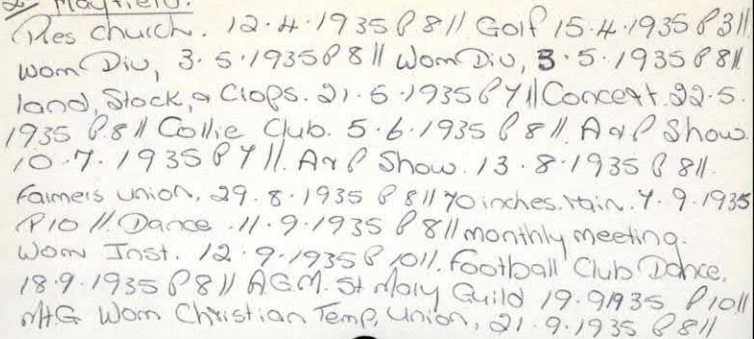 Mayfield.
Pres Church. 12.4.1935 P 8 // Golf 15.4.1935 P 3 //.
Wom Div, 3.5.1935 P 8 // Wom Div, 3.5.1935 P 8 //.
land, Stock, & Crops. 21.5.1935 P 7 // Concert. 22.5.
1935 P 8 // Collie Club. 5.6.1935 P 8 //. A & P Show.
10.7.1935 P 7 //. A & P Show. 13.8.1935 P 8 //.
Farmers Union. 29.8.1935 P 8 // 70 inches. rain. 7.9.1935
P 10 //. Dance. 11.9.1935 P 8 // monthly meeting.
Wom Inst. 12.9.1935 P 10 //. Football Club Dance.
18.9.1935 P 8 // A.G.M. St Mary Guild 19.9.1935 P 10 //
MtG Wom Christian Temp, Union, 21.9.1935 P 8 //